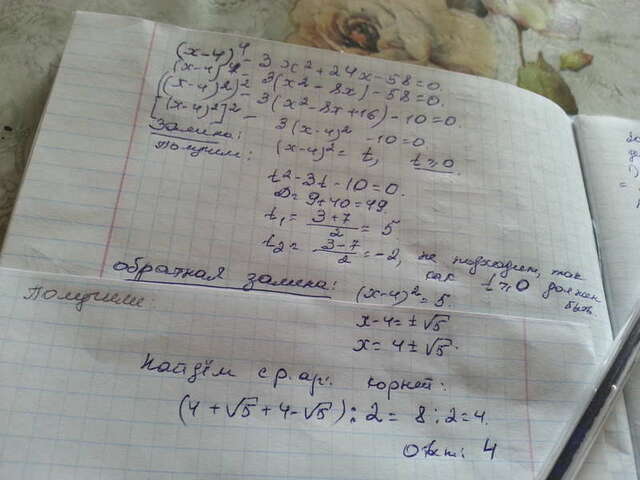 (x-4)⁴ - 3x² + 24x - 58 = 0.
(x-4)⁴ - 3(x² - 8x) - 58 = 0.
((x-4)²)² - 3(x² - 8x + 16) - 10 = 0.
[(x-4)²]² - 3(x-4)² - 10 = 0.
Замена: (x-4)² = t, t ≥ 0
Получим:
t² - 3t - 10 = 0.
D = 9 + 40 = 49.
t₁ = (3+7)/2 = 5
t₂ = (3-7)/2 = -2, не подходит, так
как t ≥ 0 должен
быть
обратная замена:
Получим: (x-4)² = 5.
x - 4 = ±√5
x = 4 ± √5.
Найдём ср. ар. корней:
(4 + √5 + 4 - √5) : 2 = 8 : 2 = 4.
Отв.: 4